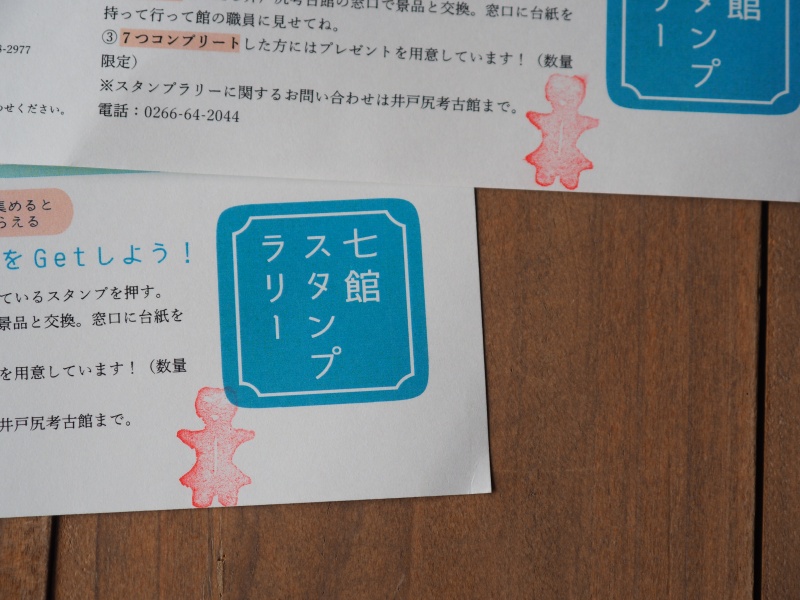 考古館の窓口で景品と交換。窓口に台紙を
持って行って館の職員に見せてね。
③７つコンプリートした方にはプレゼントを用意しています！（数量
限定）
※スタンプラリーに関するお問い合わせは井戸尻考古館まで。
電話：0266-64-2044
-2977
わせください。
館
タンプ
リー
集めると
らえる
をGetしよう！
ているスタンプを押す。
景品と交換。窓口に台紙を
を用意しています！（数量
井戸尻考古館まで。
七館
スタンプ
ラリー